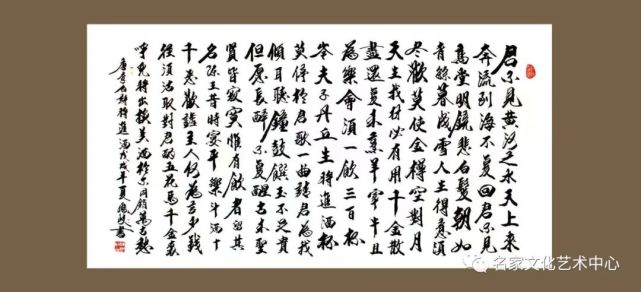 君不見黄河之水天上来
奔流到海不复回君不見
高堂明鏡悲白髮朝如
青絲暮成雪人生得意須
尽歡莫使金樽空對月
天生我材必有用千金散
盡還复来烹羊宰牛且
為樂會須一飲三百杯
岑夫子丹丘生將進酒杯
莫停於君歌一曲請君為我
傾耳聽鐘鼓饌玉不足貴
但愿長醉不复醒古来聖
賢皆寂寞惟有飲者留其
名陈王昔時宴平樂斗酒十
千恣歡謔主人何為言少錢
徑須沽取對君酌五花馬千金裘
呼兒將出換美酒於尔同銷萬古愁
唐李白詩將進酒戊戌年夏書
名家文化艺术中心